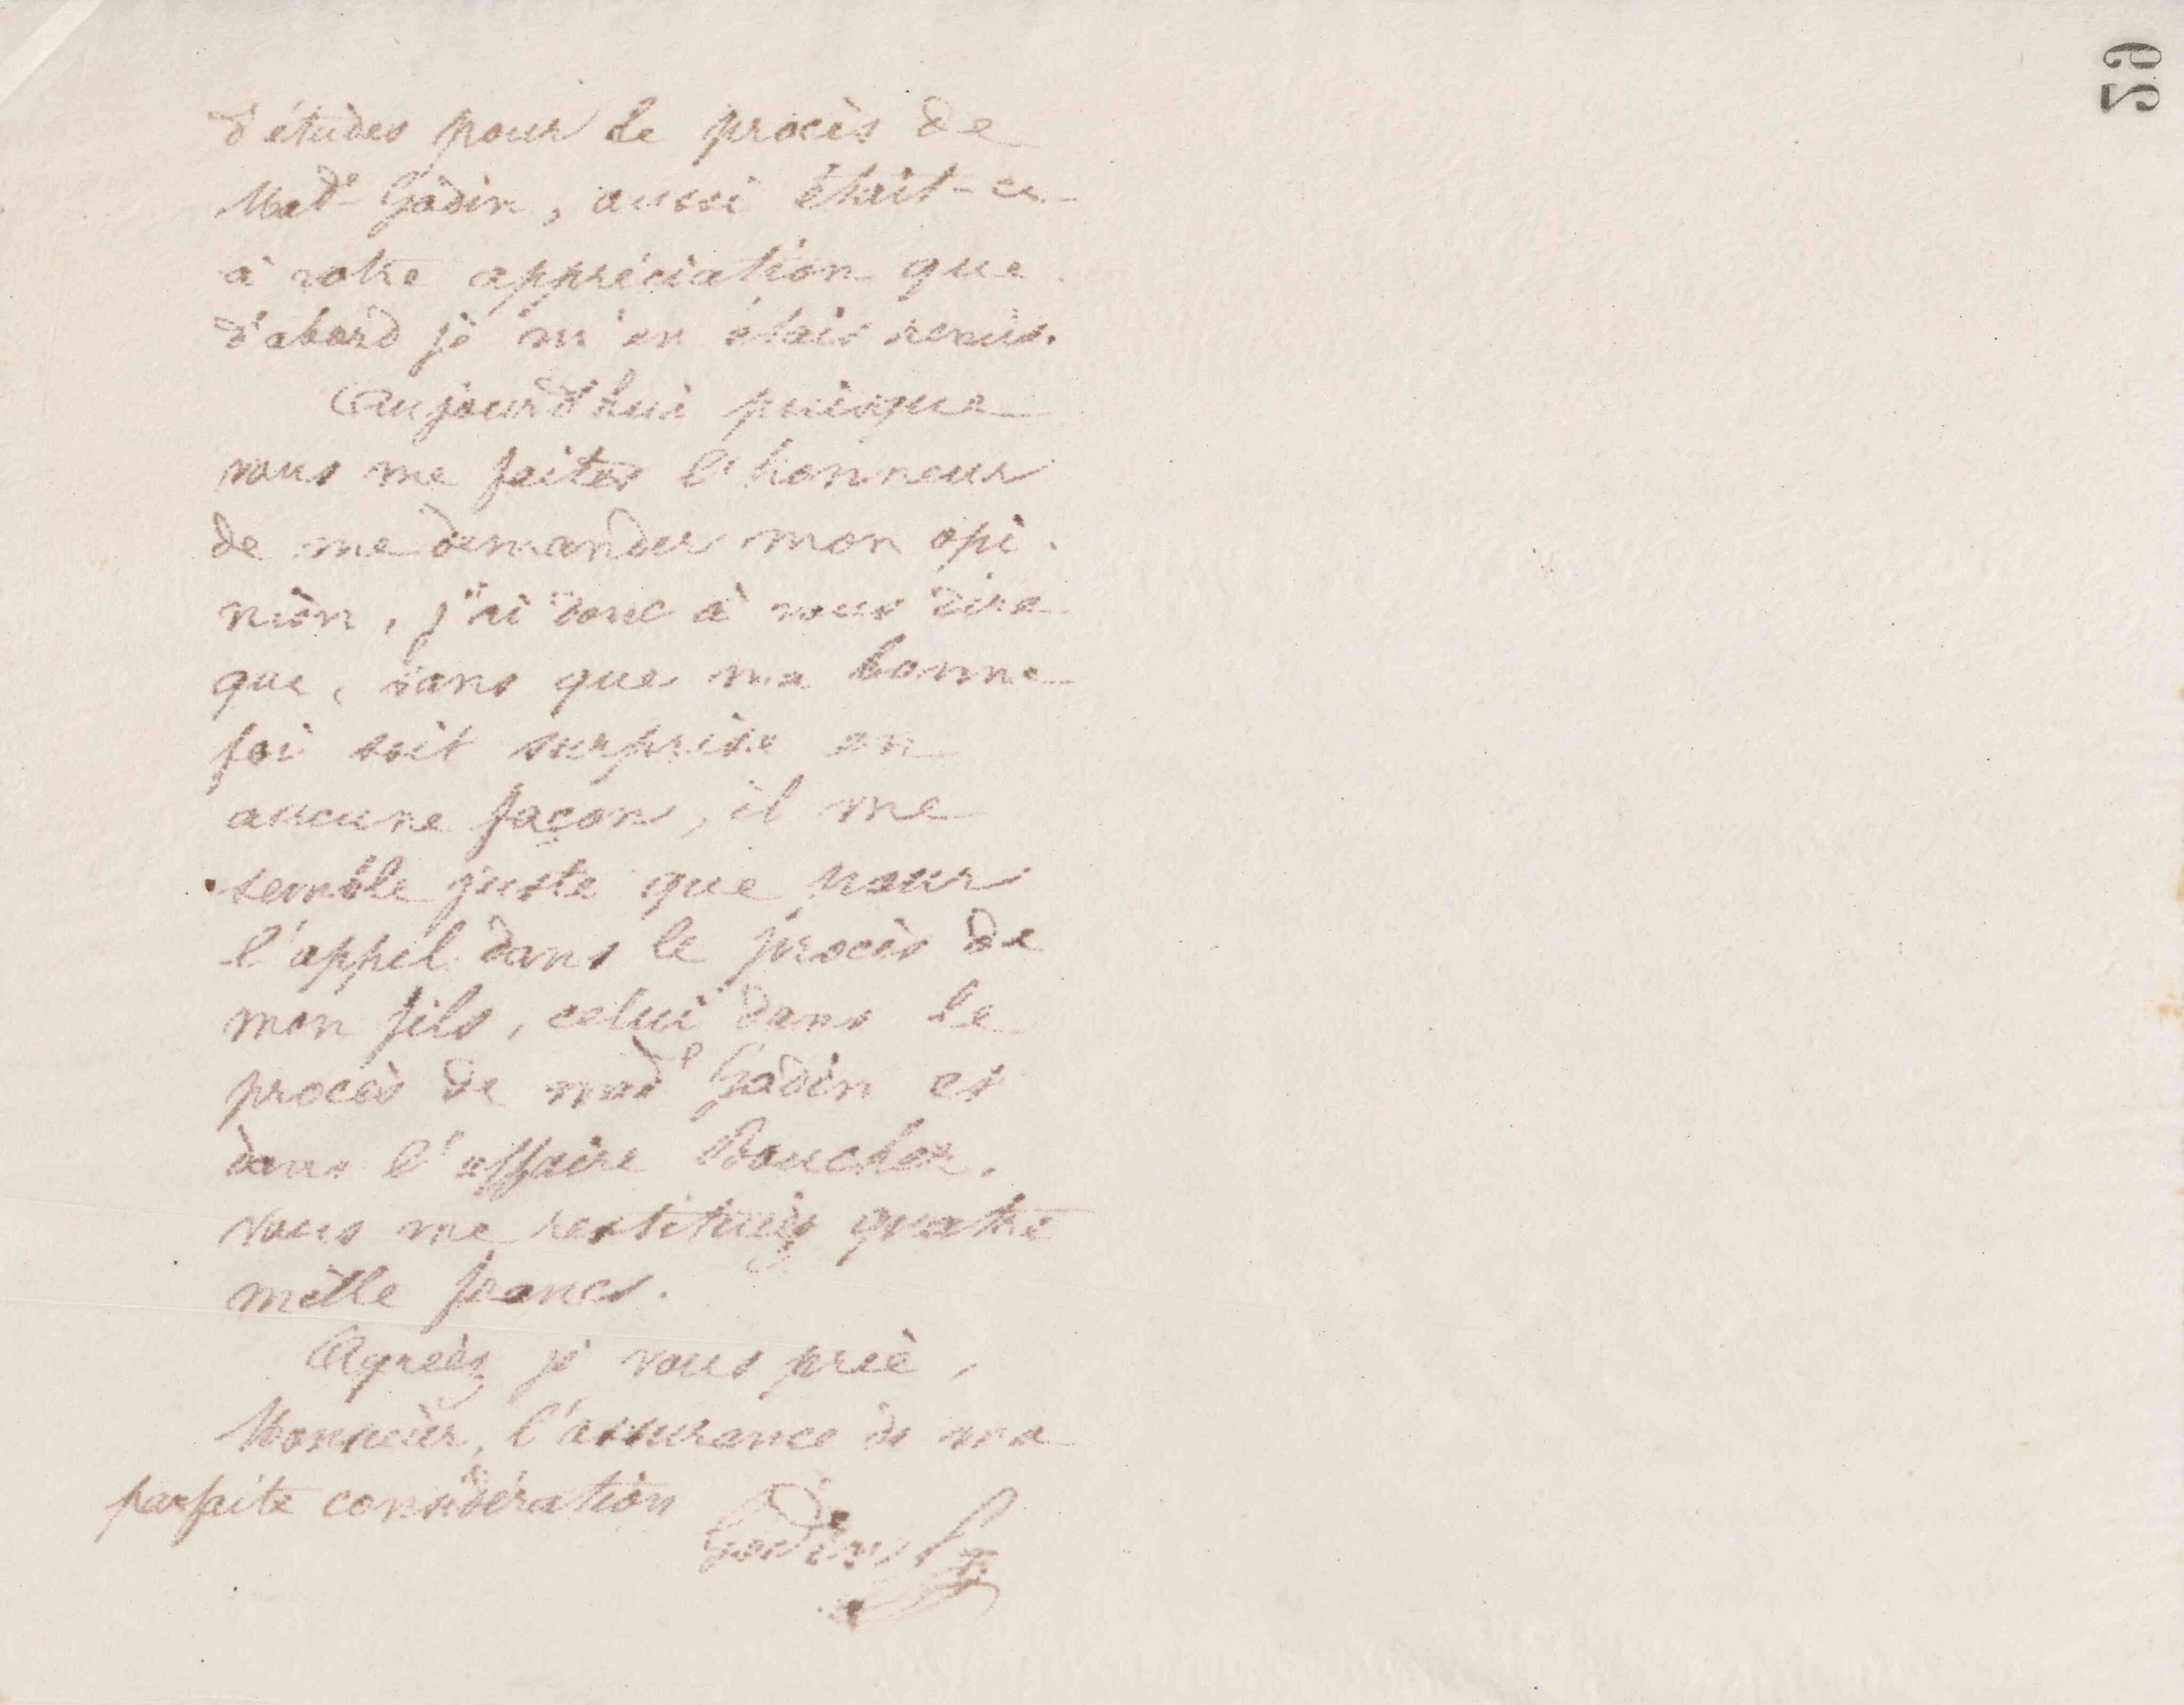 d'études pour le procès de
Made Godin, aussi était-ce
à votre appréciation que
d'abord je m'en étais remis.
Aujourd'hui puisque
vous me faites l'honneur
de me demander mon opi-
nion, j'ai donc à vous dire
que, sans que ma bonne
foi soit surprise en
aucune façon, il me
semble juste que pour
l'appel dans le procès de
mon fils, celui dans le
procès de made Godin et
dans l'affaire Boucher,
vous me restituiez quatre
mille francs.
Agréez je vous prie,
Monsieur, l'assurance de ma
parfaite considération
Godin